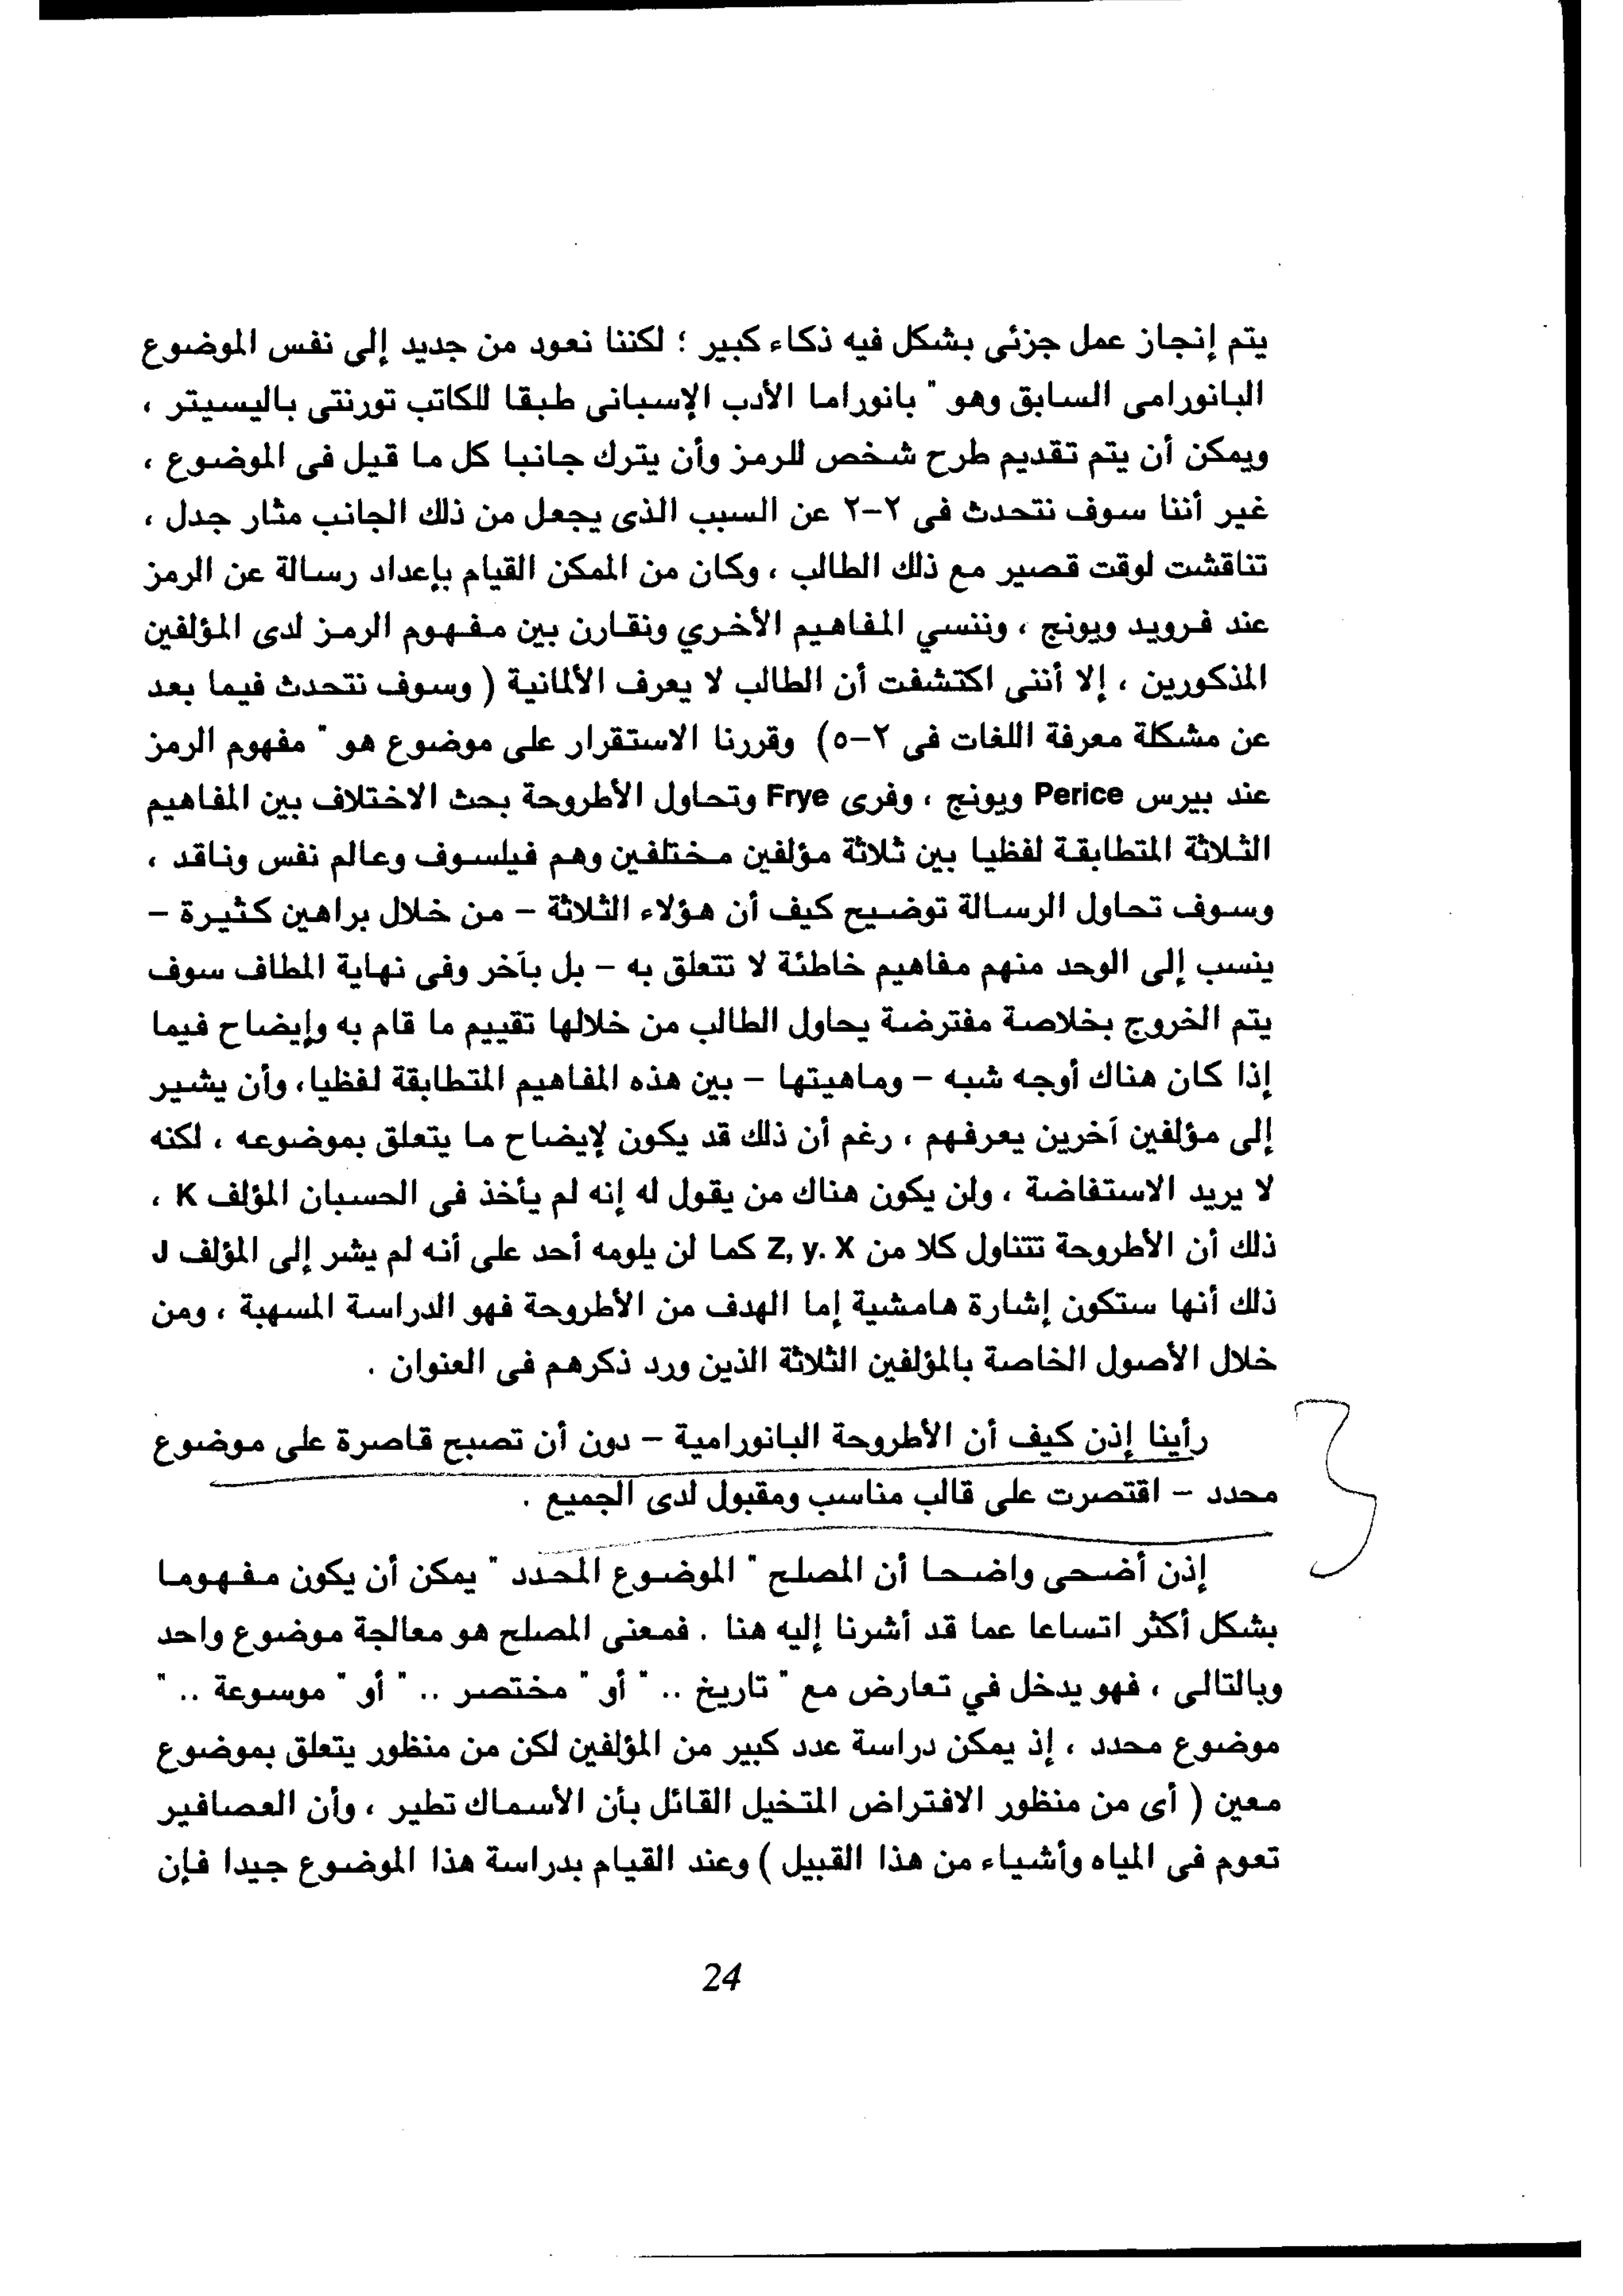 يتم إنجاز عمل جزئى بشكل فيه ذكاء كبير ؛ لكننا نعود من جديد إلى نفس الموضوع
البانورامى السابق وهو " بانوراما الأدب الإسبانى طبقا للكاتب تورنتى باليسيتر ،
ويمكن أن يتم تقديم طرح شخص للرمز وأن يترك جانبا كل ما قيل فى الموضوع ،
غير أننا سوف نتحدث فى ٢-٢ عن السبب الذى يجعل من ذلك الجانب مثار جدل ،
تناقشت لوقت قصير مع ذلك الطالب ، وكان من الممكن القيام بإعداد رسالة عن الرمز
عند فرويد ويونج ، وننسي المفاهيم الأخري ونقارن بين مفهوم الرمز لدى المؤلفين
المذكورين ، إلا أننى اكتشفت أن الطالب لا يعرف الألمانية ( وسوف نتحدث فيما بعد
عن مشكلة معرفة اللغات فى ٢-٥) وقررنا الاستقرار على موضوع هو " مفهوم الرمز
عند بيرس Perice ويونج ، وفرى Frye وتحاول الأطروحة بحث الاختلاف بين المفاهيم
الثلاثة المتطابقة لفظيا بين ثلاثة مؤلفين مختلفين وهم فيلسوف وعالم نفس وناقد ،
وسوف تحاول الرسالة توضيح كيف أن هؤلاء الثلاثة - من خلال براهين كثيرة -
ينسب إلى الوحد منهم مفاهيم خاطئة لا تتعلق به - بل بآخر وفى نهاية المطاف سوف
يتم الخروج بخلاصة مفترضة يحاول الطالب من خلالها تقييم ما قام به وإيضاح فيما
إذا كان هناك أوجه شبه - وماهيتها - بين هذه المفاهيم المتطابقة لفظيا، وأن يشير
إلى مؤلفين آخرين يعرفهم ، رغم أن ذلك قد يكون لإيضاح ما يتعلق بموضوعه ، لكنه
لا يريد الاستفاضة ، ولن يكون هناك من يقول له إنه لم يأخذ فى الحسبان المؤلف K ،
ذلك أن الأطروحة تتناول كلا من Z, y. X كما لن يلومه أحد على أنه لم يشر إلى المؤلف J
ذلك أنها ستكون إشارة هامشية إما الهدف من الأطروحة فهو الدراسة المسهبة ، ومن
خلال الأصول الخاصة بالمؤلفين الثلاثة الذين ورد ذكرهم فى العنوان .
رأينا إذن كيف أن الأطروحة البانورامية - دون أن تصبح قاصرة على موضوع
محدد - اقتصرت على قالب مناسب ومقبول لدى الجميع .
إذن أضحى واضحا أن المصلح " الموضوع المحدد " يمكن أن يكون مفهوما
بشكل أكثر اتساعا عما قد أشرنا إليه هنا . فمعنى المصلح هو معالجة موضوع واحد
وبالتالى ، فهو يدخل في تعارض مع " تاريخ .. " أو " مختصر .. " أو " موسوعة .. "
موضوع محدد ، إذ يمكن دراسة عدد كبير من المؤلفين لكن من منظور يتعلق بموضوع
معين ( أى من منظور الافتراض المتخيل القائل بأن الأسماك تطير ، وأن العصافير
تعوم فى المياه وأشياء من هذا القبيل ) وعند القيام بدراسة هذا الموضوع جيدا فإن
24